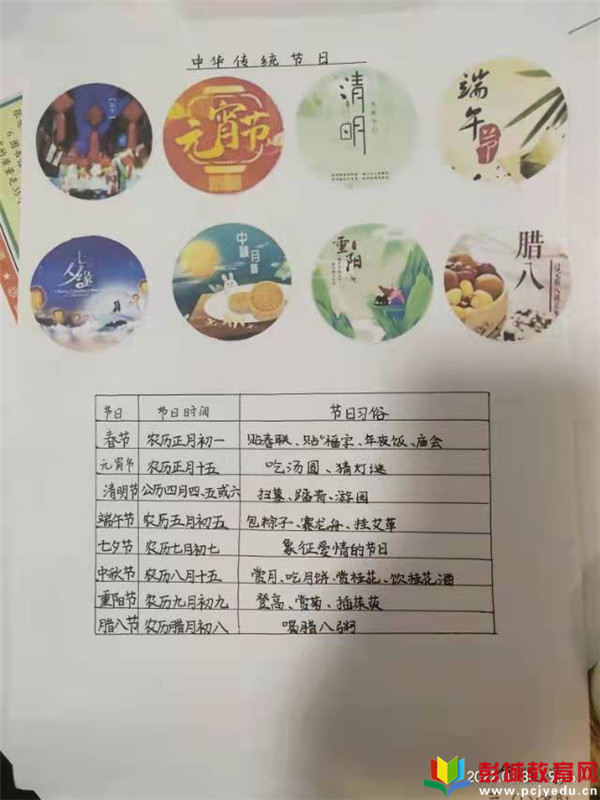 中华传统节日
元宵节
清明
端午节
七夕缘
中秋
重阳
腊八
节日 节日时间 节日习俗
春节 农历正月初一 贴春联、贴“福”字、年夜饭、庙会
元宵节 农历正月十五 吃汤圆、猜灯谜
清明节 公历四月四、五或六 扫墓、踏青、游园
端午节 农历五月初五 包粽子、赛龙舟、挂艾草
七夕节 农历七月初七 象征爱情的节日
中秋节 农历八月十五 赏月、吃月饼、赏桂花、饮桂花酒
重阳节 农历九月初九 登高、赏菊、插茱萸
腊八节 农历腊月初八 喝腊八粥
彭城教育网
www.pcjyedu.cn